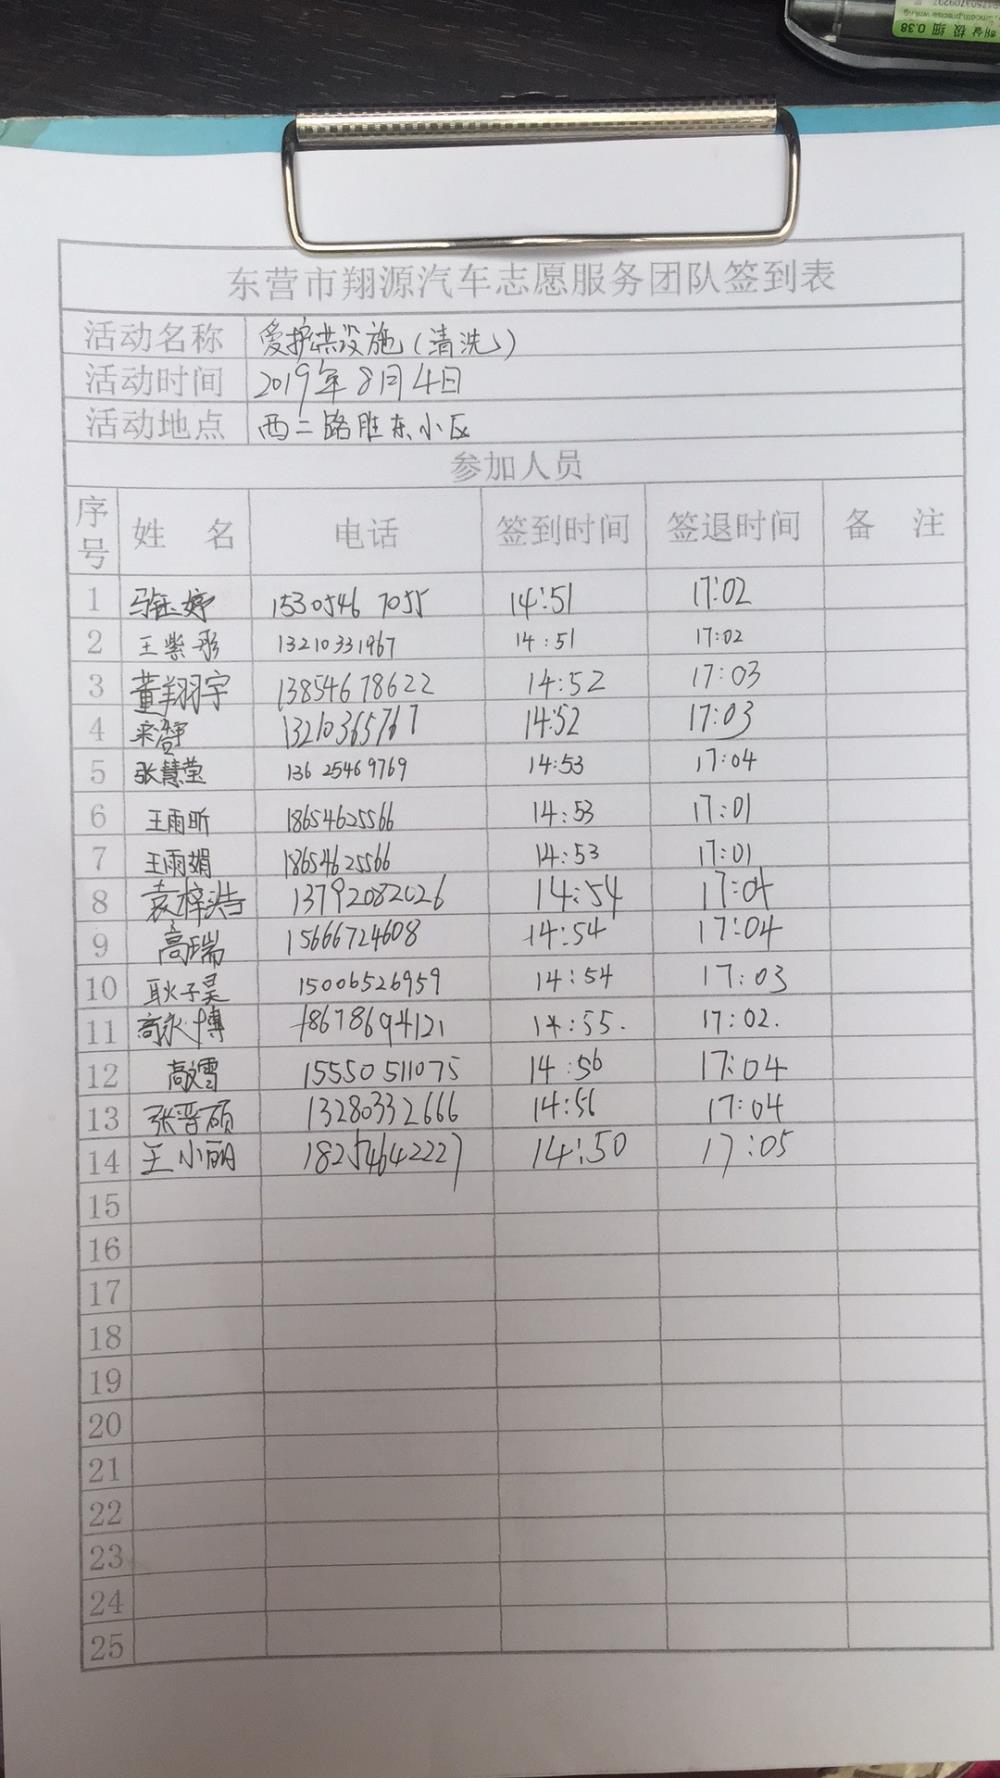 东营市翔源汽车志愿服务团队签到表
活动名称 爱护公共设施(清洗)
活动时间 2019年8月4日
活动地点 西二路胜东小区
参加人员
序号 姓名 电话 签到时间 签退时间 备注
1 马钰婷 15305467055 14:51 17:02
2 王紫彤 13210331967 14:51 17:02
3 董翔宇 13854678622 14:52 17:03
4 13210365767 14:52 17:03
5 张慧莹 13625469769 14:53 17:04
6 王雨昕 18654625566 14:53 17:01
7 王雨娟 18654625566 14:53 17:01
8 袁梓浩 13792082026 14:54 17:04
9 高瑞 15666724608 14:54 17:04
10 耿子昊 15006526959 14:54 17:03
11 高永博 18678694121 14:55. 17:02.
12 高雪 15550511075 14:56 17:04
13 张晋硕 13280332666 14:56 17:04
14 王小丽 18254642227 14:50 17:05
15
16
17
18
19
20
21
22
23
24
25